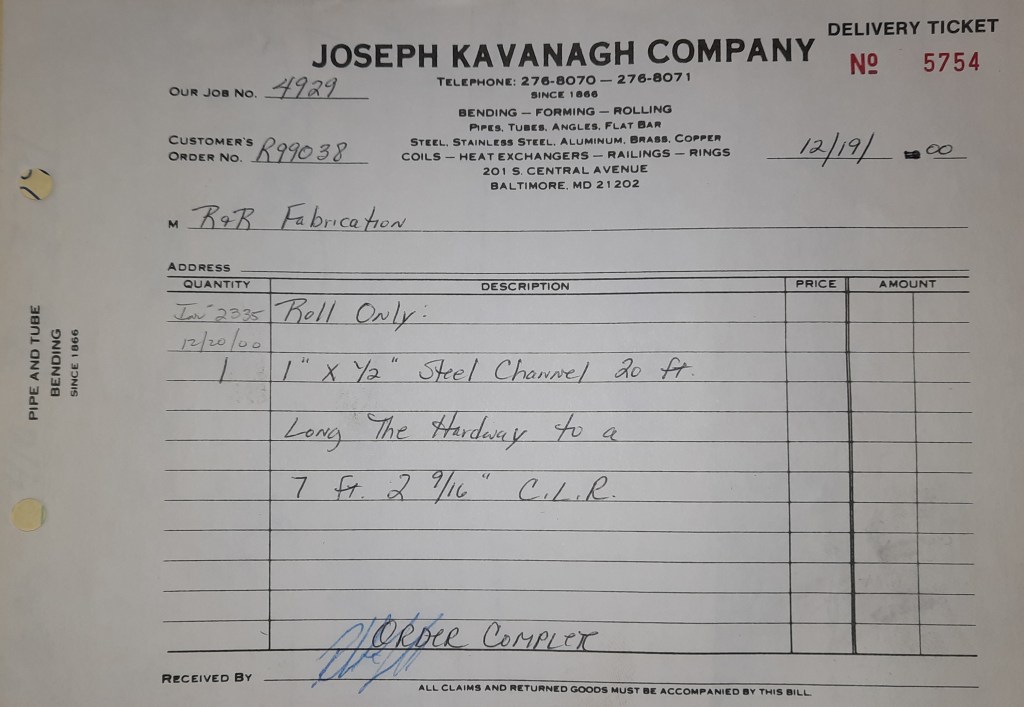 DELIVERY TICKET
JOSEPH KAVANAGH COMPANY
Nº 5754
TELEPHONE: 276-8070 — 276-8071
OUR JOB NO. 4929
SINCE 1866
BENDING — FORMING — ROLLING
PIPES, TUBES, ANGLES, FLAT BAR
STEEL, STAINLESS STEEL, ALUMINUM, BRASS, COPPER
CUSTOMER'S ORDER NO. R99038
COILS — HEAT EXCHANGERS — RAILINGS — RINGS
12/19/ 00
201 S. CENTRAL AVENUE
BALTIMORE, MD 21202
M R&R Fabrication
ADDRESS
QUANTITY DESCRIPTION PRICE AMOUNT
Inv 2335 Roll Only:
12/20/00
1 1" X 1/2" Steel Channel 20 ft.
Long The Hardway to a
7 ft. 2 9/16" C.L.R.
ORDER COMPLET
RECEIVED BY
ALL CLAIMS AND RETURNED GOODS MUST BE ACCOMPANIED BY THIS BILL
PIPE AND TUBE
BENDING
SINCE 1866